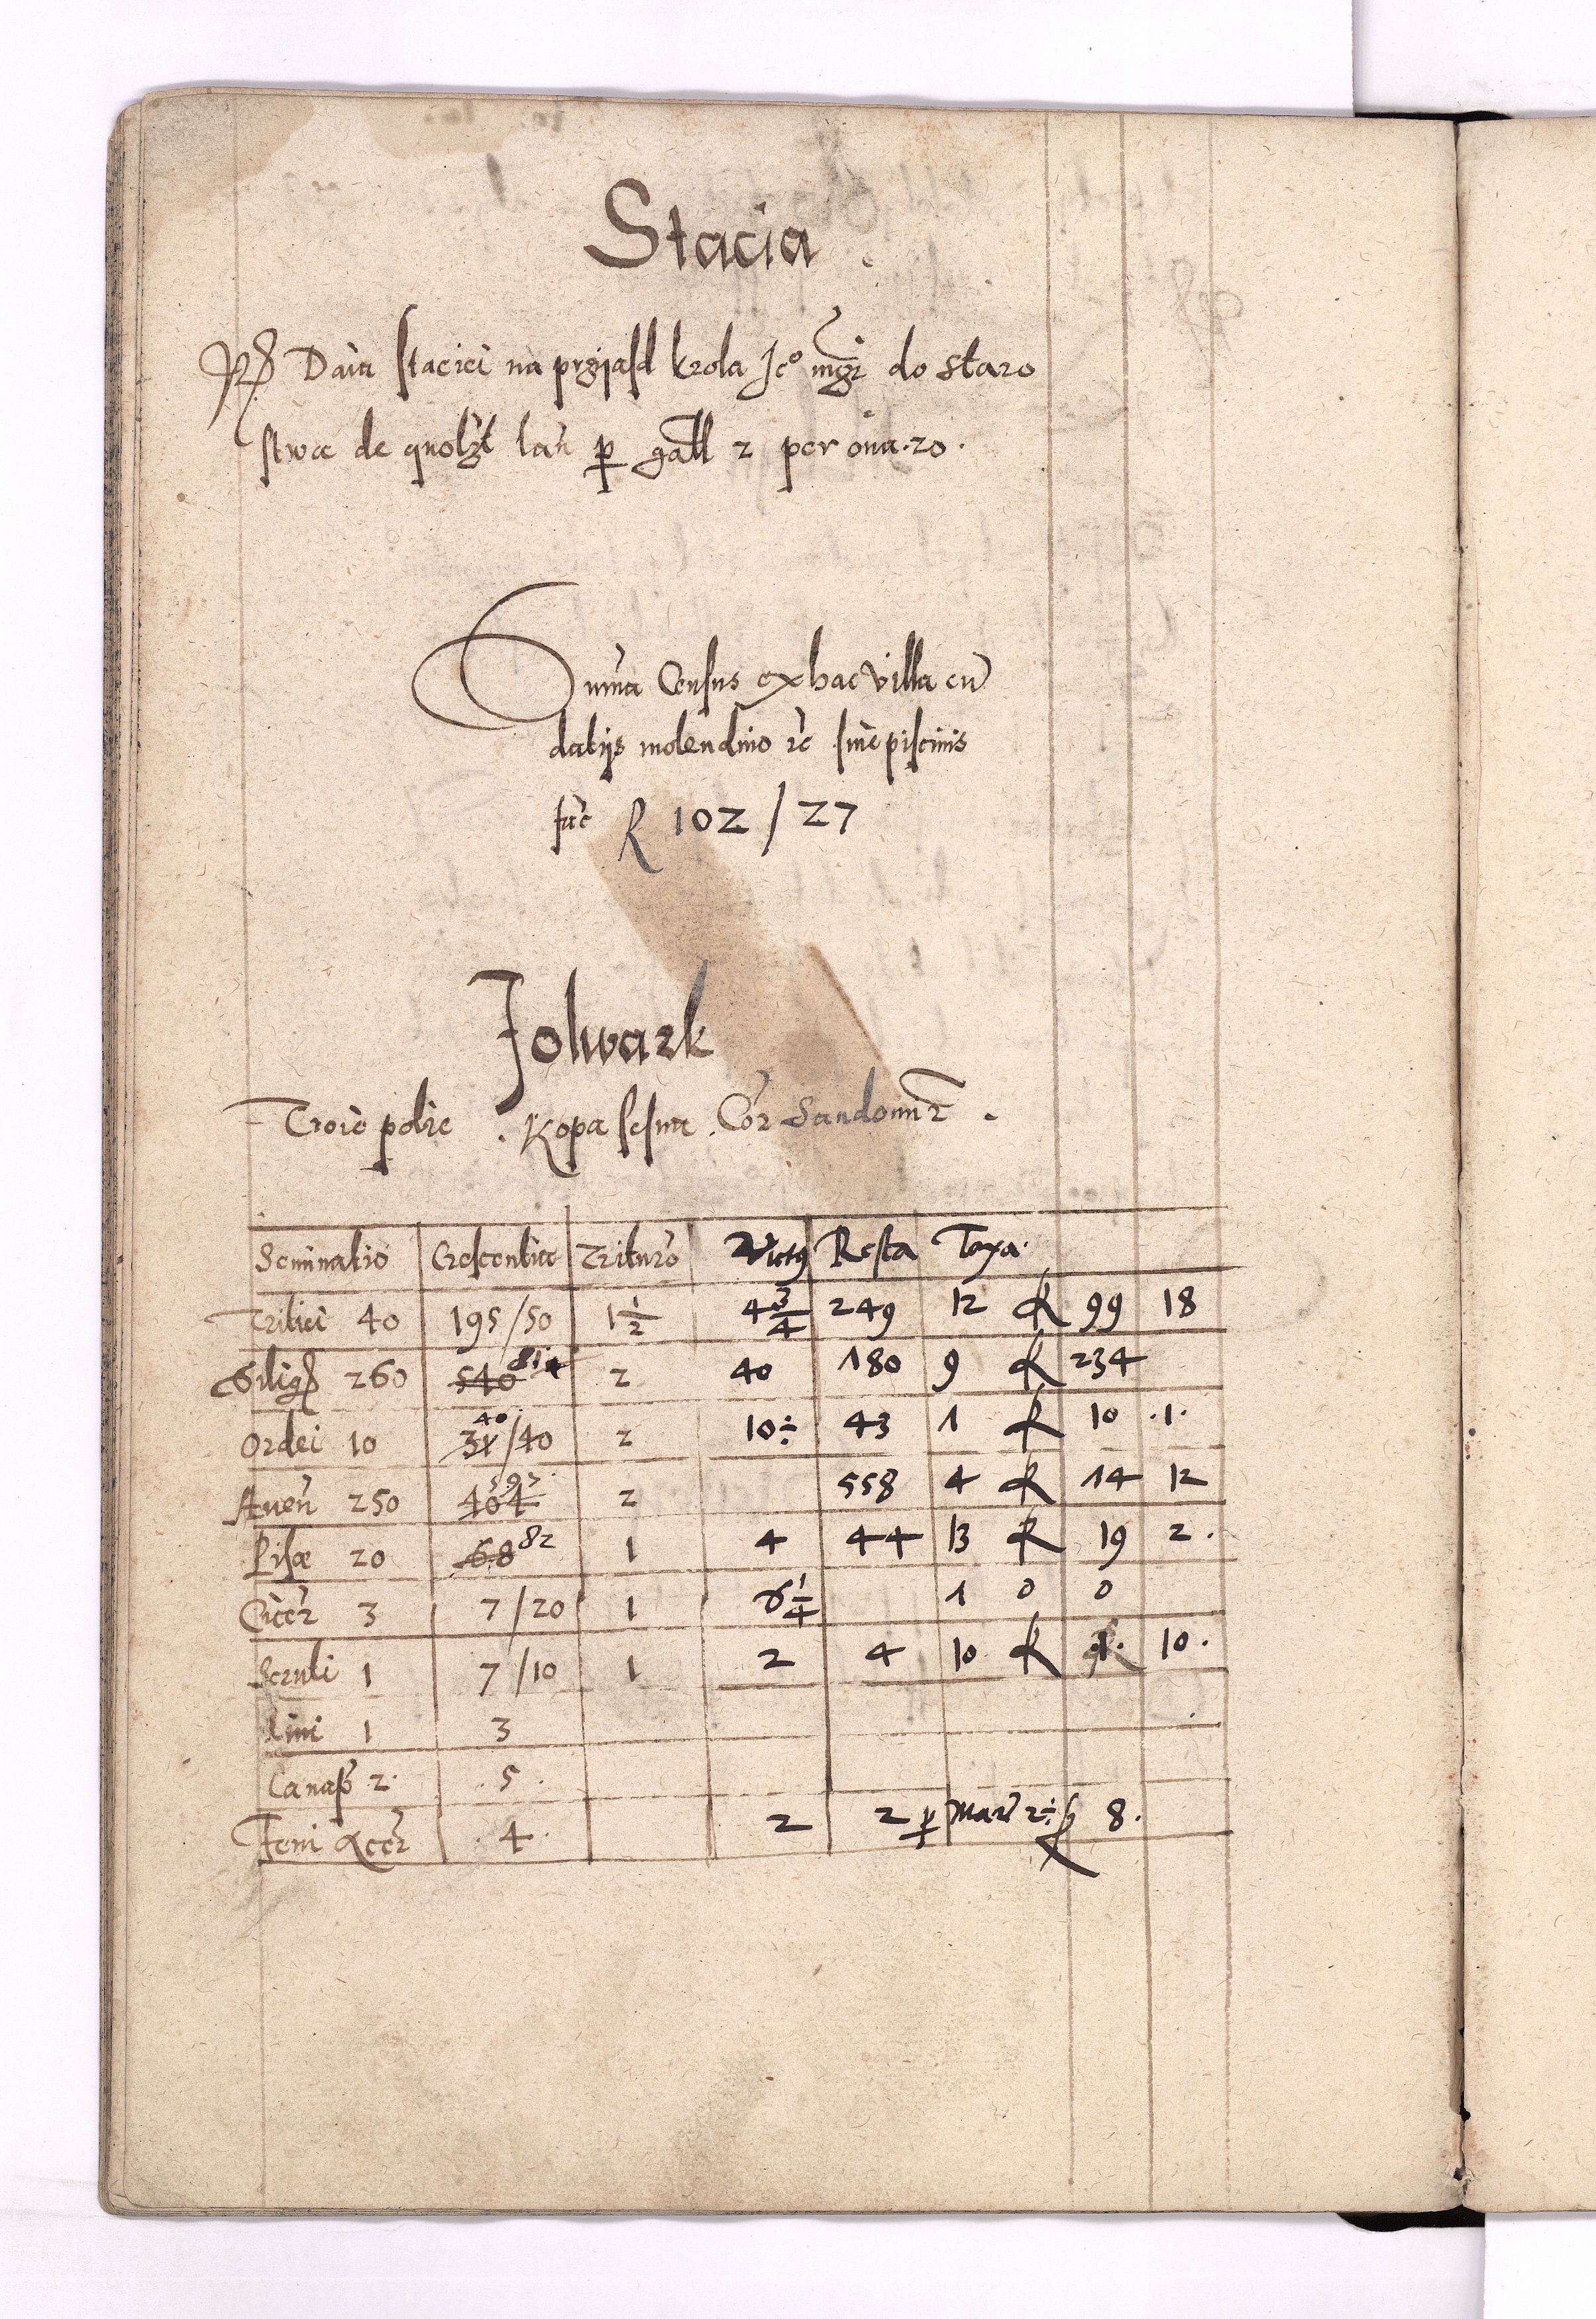 Stacia
Daia staciei na prziasd krola Jeo mgz do staro
stwa de quolzt lan p gall 2 per oua 20.
Suma Census ex hac villa cu
datijs molendino zc sine piscinis
fac R 102/27
Folwark
Troie polie. Kopa sesna. Cor Sandomiz.
Seminatio Crescentia Trituro Victus Resta Taxa
Tritici 40 195/50 1 1/2 4 3/4 249 12 R 99 18
Silig 260 540 814 2 40 180 9 R 234
Ordei 10 40 34/40 2 10÷ 43 1 R 10 .1.
Auen 250 592 404 2 558 4 R 14 12
Pisæ 20 68 82 1 4 44 13 R 19 2.
Cicer 3 7/20 1 6 1/4 1 0 0
1 7/10 1 2 4 10 R 1. 10.
Lini 1 3
Canap 2. 5.
Feni Acer 4. 2 2 p Mar 2÷ R 8.